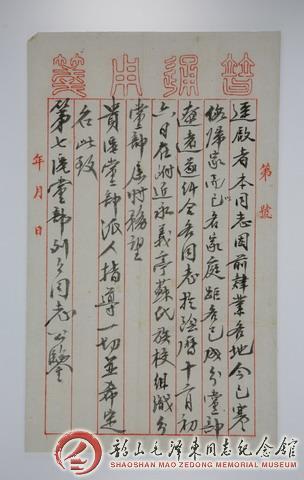 普通用箋
第 號
逕啟者本同志因前肄業各地今已寒
歸家已各家庭距各已成分黨部
遼遠糾合各同志於陰曆十二月初
六日在附近永義亭蘇氏族校組織分
黨部屆時務望
貴區黨部派人指導一切並希定
名此致
第七區黨部列公同志公鑒
年 月 日
韶山毛澤東同志紀念館
SHAOSHAN MAO ZEDONG MEMORIAL MUSEUM